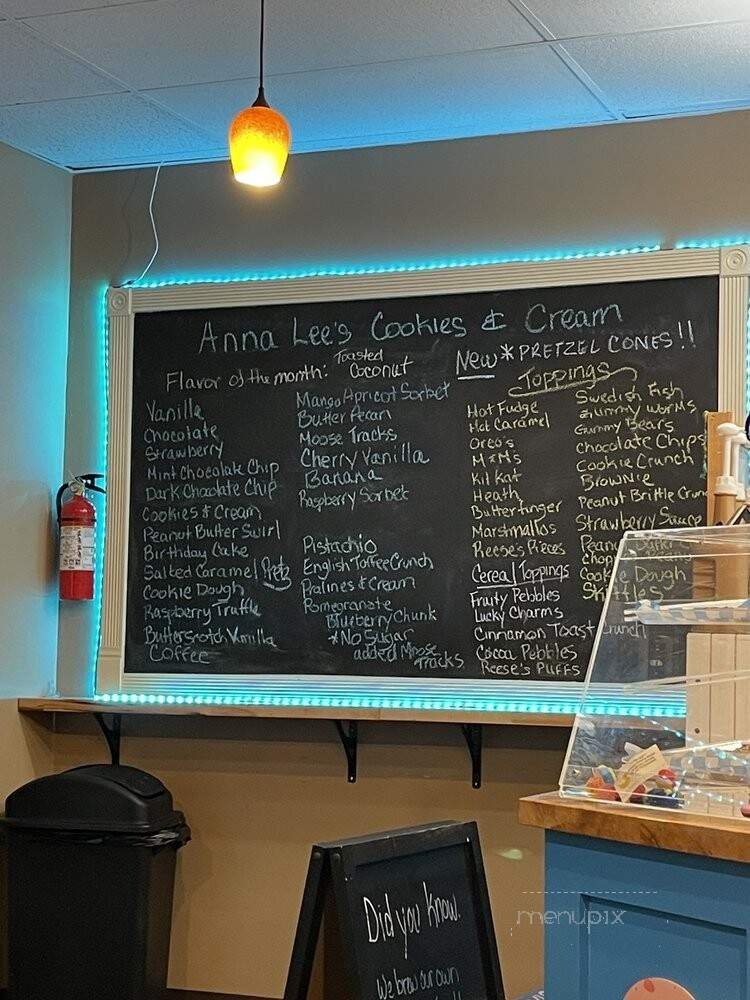 Anna Lee's Cookies & Cream
Flavor of the month: Toasted Coconut
New * PRETZEL CONES!!
Vanilla
Chocolate
Strawberry
Mint Chocolate Chip
Dark Chocolate Chip
Cookies & Cream
Peanut Butter Swirl
Birthday Cake
Salted Caramel Pretz
Cookie Dough
Raspberry Truffle
Butterscotch Vanilla
Coffee
Mango Apricot Sorbet
Butter Pecan
Moose Tracks
Cherry Vanilla
Banana
Raspberry Sorbet
Pistachio
English Toffee Crunch
Pralines & Cream
Pomegranate
Blueberry Chunk
*No Sugar
added Moose
Tracks
Toppings
Hot Fudge
Hot Caramel
Oreo's
M&M's
Kil Kat
Heath
Butterfinger
Marshmallos
Reese's Pieces
Cereal Toppings
Fruity Pebbles
Lucky Charms
Cinnamon Toast Crunch
Cocoa Pebbles
Reese's PUFFS
Swedish Fish
Gummy Worms
Gummy Bears
Chocolate Chips
Cookie Crunch
BROWNIE
Peanut Brittle Crun
Strawberry Sauce
Cookie Dough
Skittles
Did you know.
We brew our own
menupix